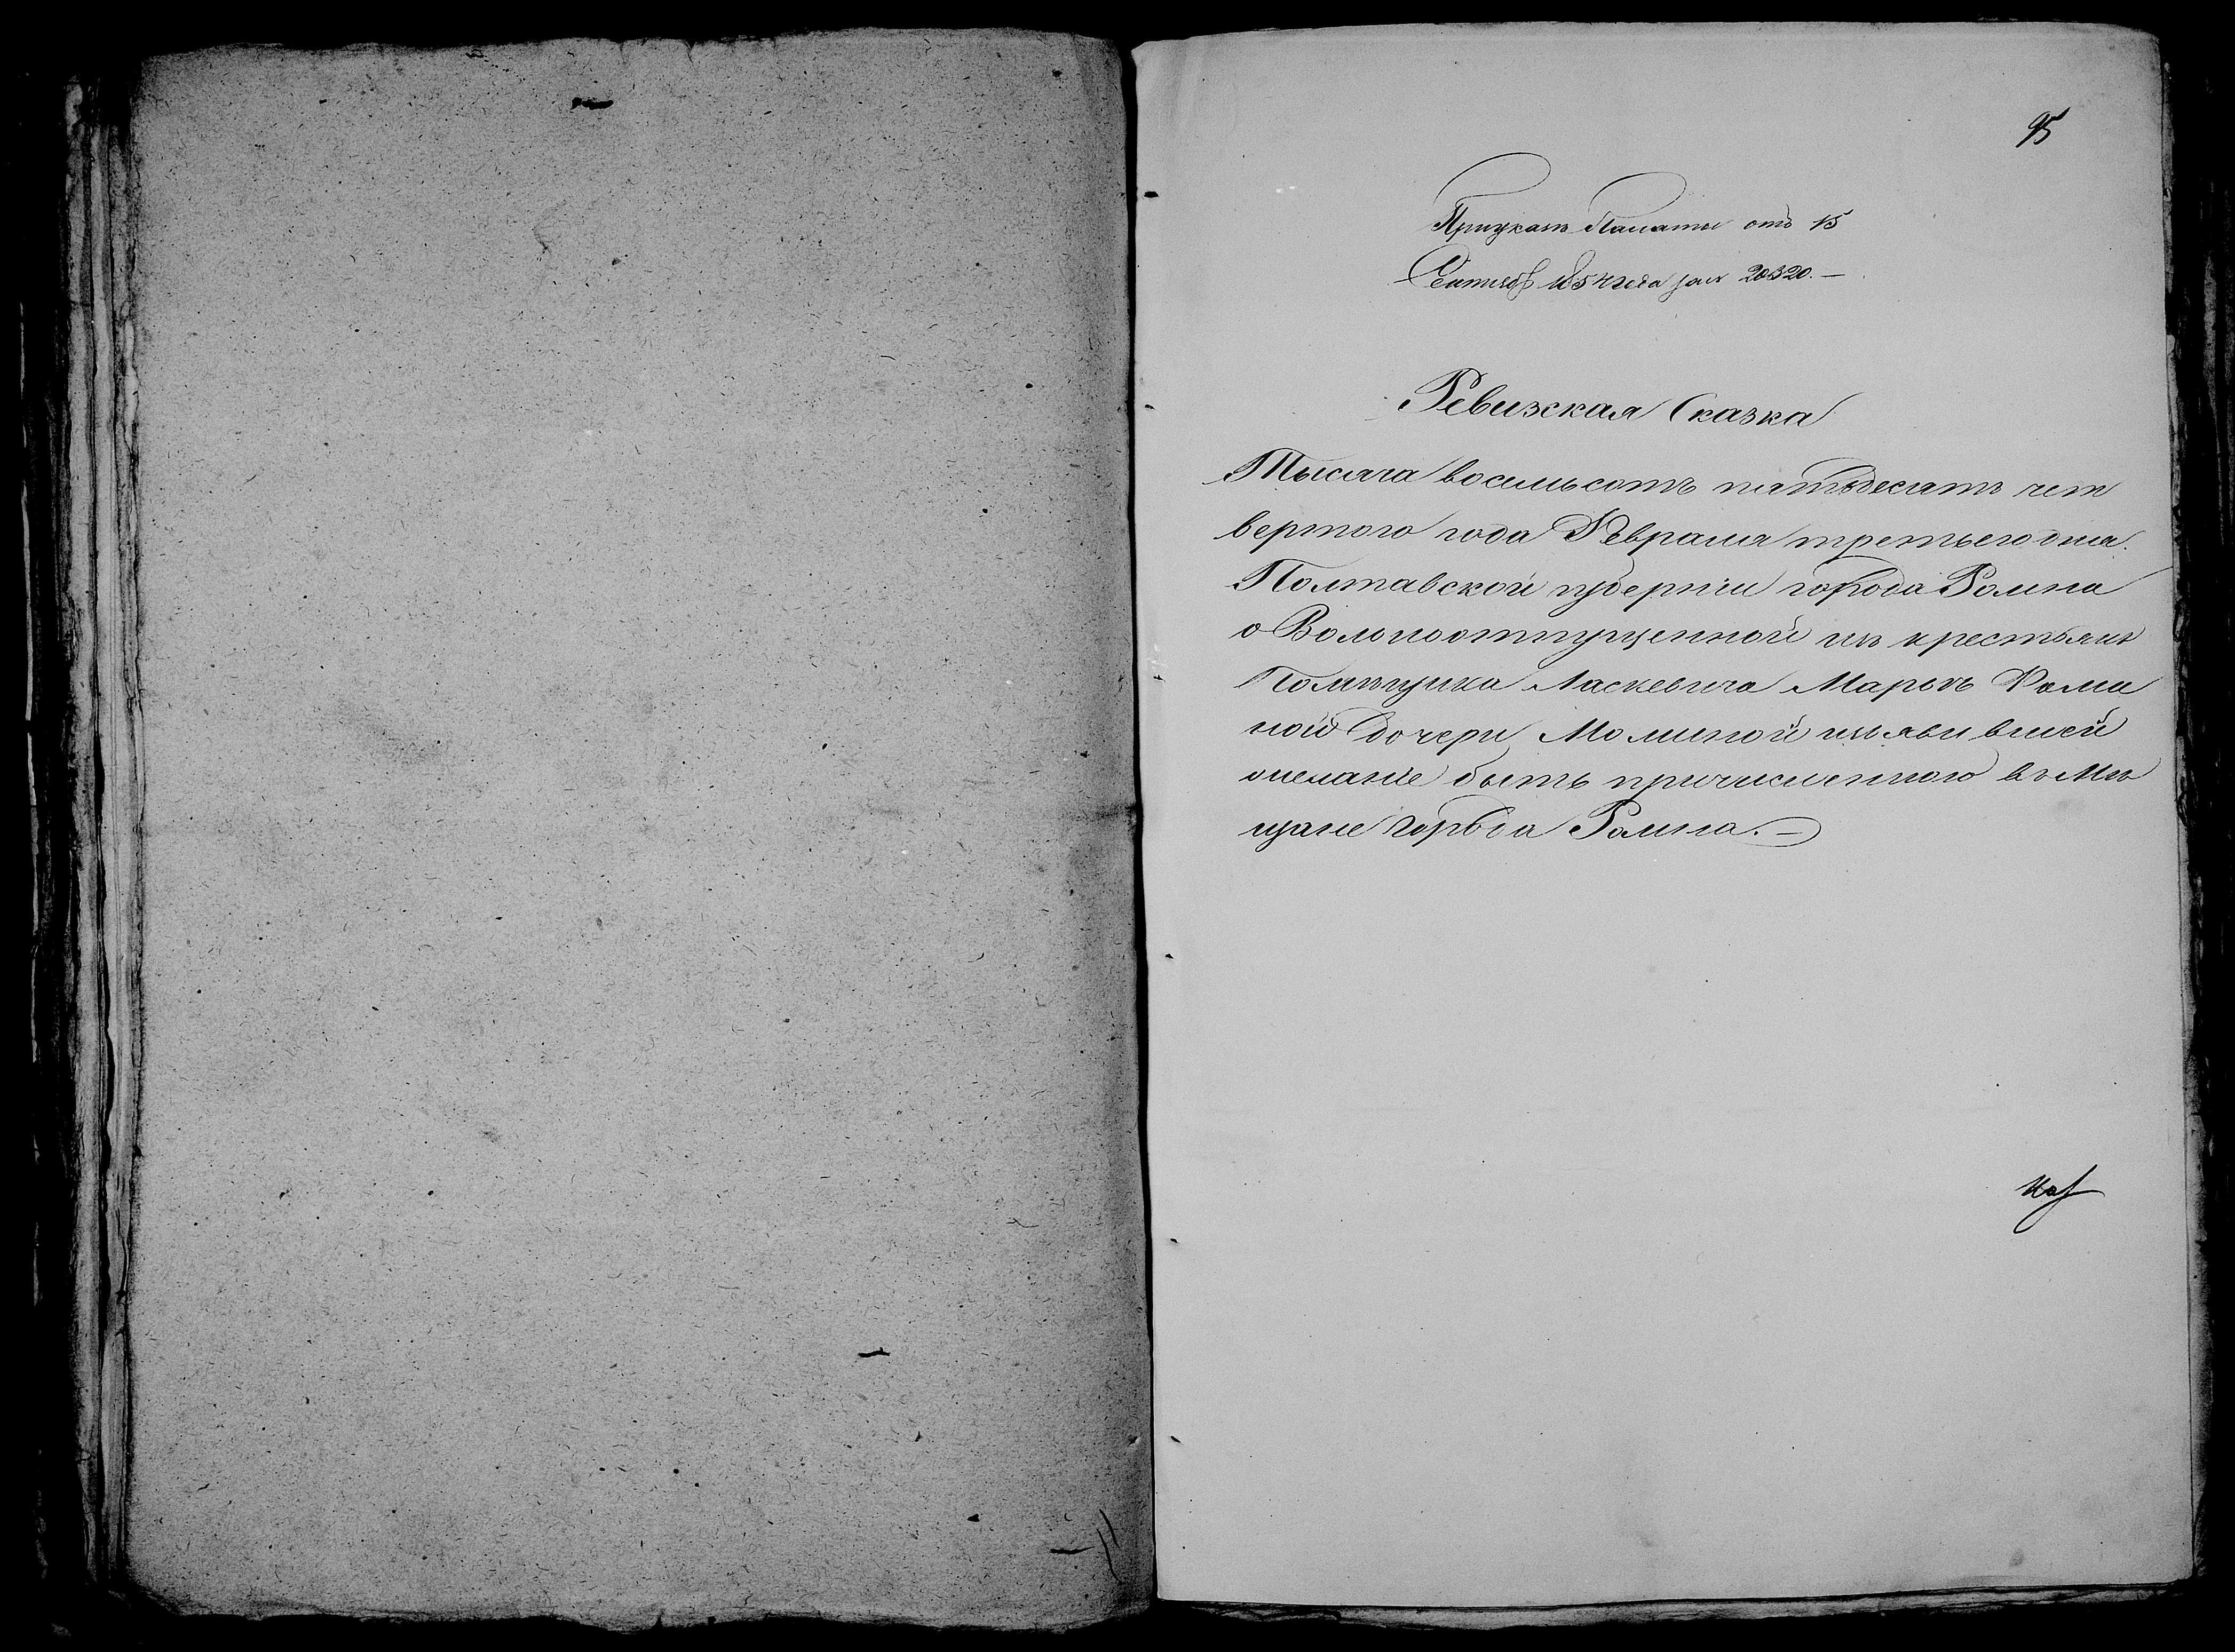 95
При указѣ Палаты отъ 15
Сентяб 1854 года за № 20320. —
Ревизская Сказка
Тысяча восемьсотъ пятьдесятъ чет
вертого года Февраля третьего дня.
Полтавской губерніи города Ромна
о Вольноотпущенной изъ крестьянъ
Помѣщика Ласкевича Марьѣ Фоми
ной дочери Молиной изъявившей
желаніе быть причисленною въ Мѣ
щане города Ромна. —